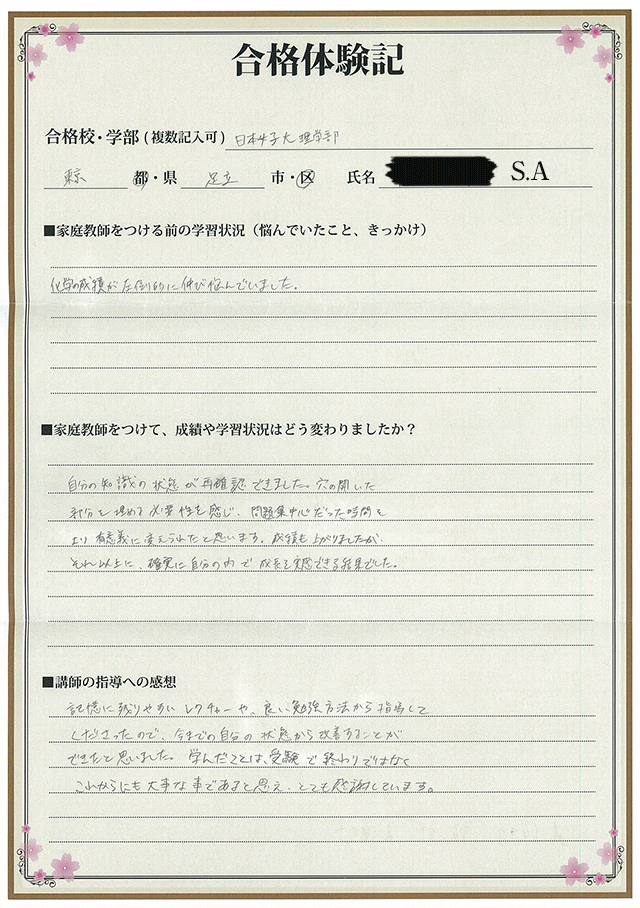 合格体験記
合格校・学部(複数記入可) 日本女子大 理学部
東京 都・県 足立 市・区 氏名 S.A
■家庭教師をつける前の学習状況（悩んでいたこと、きっかけ）
化学の成績が圧倒的に伸び悩んでいました。
■家庭教師をつけて、成績や学習状況はどう変わりましたか？
自分の知識の状態が再確認できました。穴の開いた
部分を埋める必要性を感じ、問題集中心だった時間を
より有意義に変えられたと思います。成績も上がりましたが、
それ以上に、確実に自分の内で成長を実感できる結果でした。
■講師の指導への感想
記憶に残りやすいレクチャーや、良い勉強方法から指導して
くださったので、今までの自分の状態から改善することが
できたと思いました。学んだことは、受験で終わりではなく
これからにも大事な事であると思え、とても感謝しています。